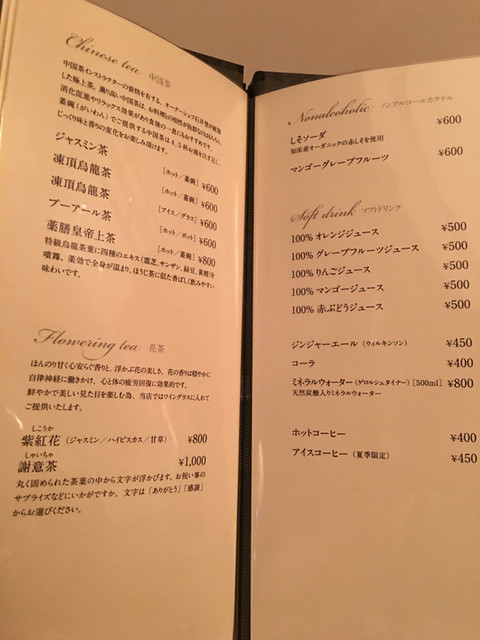 Chinese tea 中国茶
中国茶インストラクターの資格を有する、オーナーシェフ
した極上茶。薫り高い中国茶は、お料理との相性が抜群なのはもちろん、
消化促進やリラックス効果があり食後の一息にもおすすめです。
蓋碗(がいわん)でご提供する中国茶は4,5杯お湯を注ぎ足し、
じっくり味と香りの変化をお楽しみ頂けます。
ジャスミン茶 [ホット/蓋碗] ¥600
凍頂烏龍茶 [ホット/蓋碗] ¥600
凍頂烏龍茶 [アイス/グラス] ¥600
プーアール茶 [ホット/ポット] ¥600
薬膳皇帝上茶 [ホット/蓋碗] ¥800
特級烏龍茶葉に四種のエキス(霊芝、サンザシ、緑豆、黄精)を
噴霧。薬効で全身が温まり、ほうじ茶に似た香ばしく飲みやすい
味わいです。
Flowering tea 花茶
ほんのり甘く心安らぐ香りと、浮かぶ花の美しさ。花の香は穏やかに
自律神経に働きかけ、心と体の疲労回復に効果的です。
鮮やかで美しい見た目を楽しむ為、当店ではワイングラスに入れて
ご提供いたします。
しこうか
紫紅花(ジャスミン/ハイビスカス/甘草) ¥800
しゃいちゃ
謝意茶 ¥1,000
丸く固められた茶葉の中から文字が浮かびます。お祝い事の
サプライズなどにいかがですか。文字は「ありがとう」「感謝」
からお選びください。
Nonalcoholic ノンアルコールカクテル
しそソーダ ¥600
知床産オーガニックの赤しそを使用
マンゴーグレープフルーツ ¥600
Soft drink ソフトドリンク
100% オレンジジュース ¥500
100% グレープフルーツジュース ¥500
100% りんごジュース ¥500
100% マンゴージュース ¥500
100% 赤ぶどうジュース ¥500
ジンジャーエール(ウィルキンソン) ¥450
コーラ ¥400
ミネラルウォーター(ゲロルシュタイナー)[500ml] ¥800
天然炭酸入りミネラルウォーター
ホットコーヒー ¥400
アイスコーヒー(夏季限定) ¥450